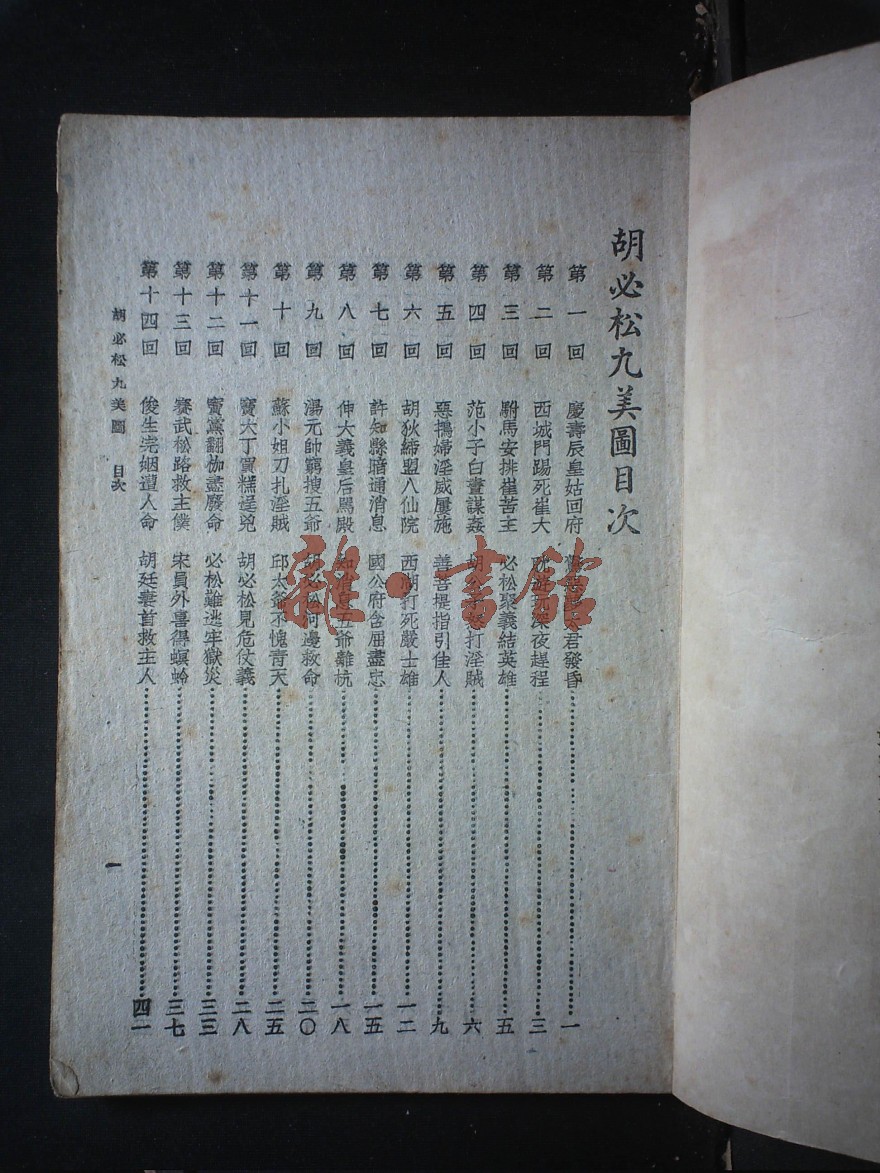 胡必松九美圖目次
第一回 慶壽辰皇姑回府 太君發昏 一
第二回 西城門踢死崔大 深夜趕程 三
第三回 駙馬安排崔苦主 必松聚義結英雄 五
第四回 范小子白晝謀姦 胡公子怒打淫賊 六
第五回 惡鴇婦淫威屢施 善菩提指引佳人 九
第六回 胡狄締盟八仙院 西湖打死嚴士雄 一二
第七回 許知縣暗通消息 國公府含屈盡忠 一五
第八回 伸大義皇后罵殿 知消息五爺離杭 一八
第九回 湯元帥窮搜五爺 胡必松河邊救命 二〇
第十回 蘇小姐刀扎淫賊 邱太爺不愧青天 二五
第十一回 竇大丁買糕逞兇 胡必松見危仗義 二八
第十二回 竇黨翻枷盡廢命 必松難逃牢獄災 三三
第十三回 賽武松路救主僕 宋員外喜得螟蛉 三七
第十四回 俊生完姻遭人命 胡廷棄首救主人 四一
胡必松九美圖 目次
一
雜·書館